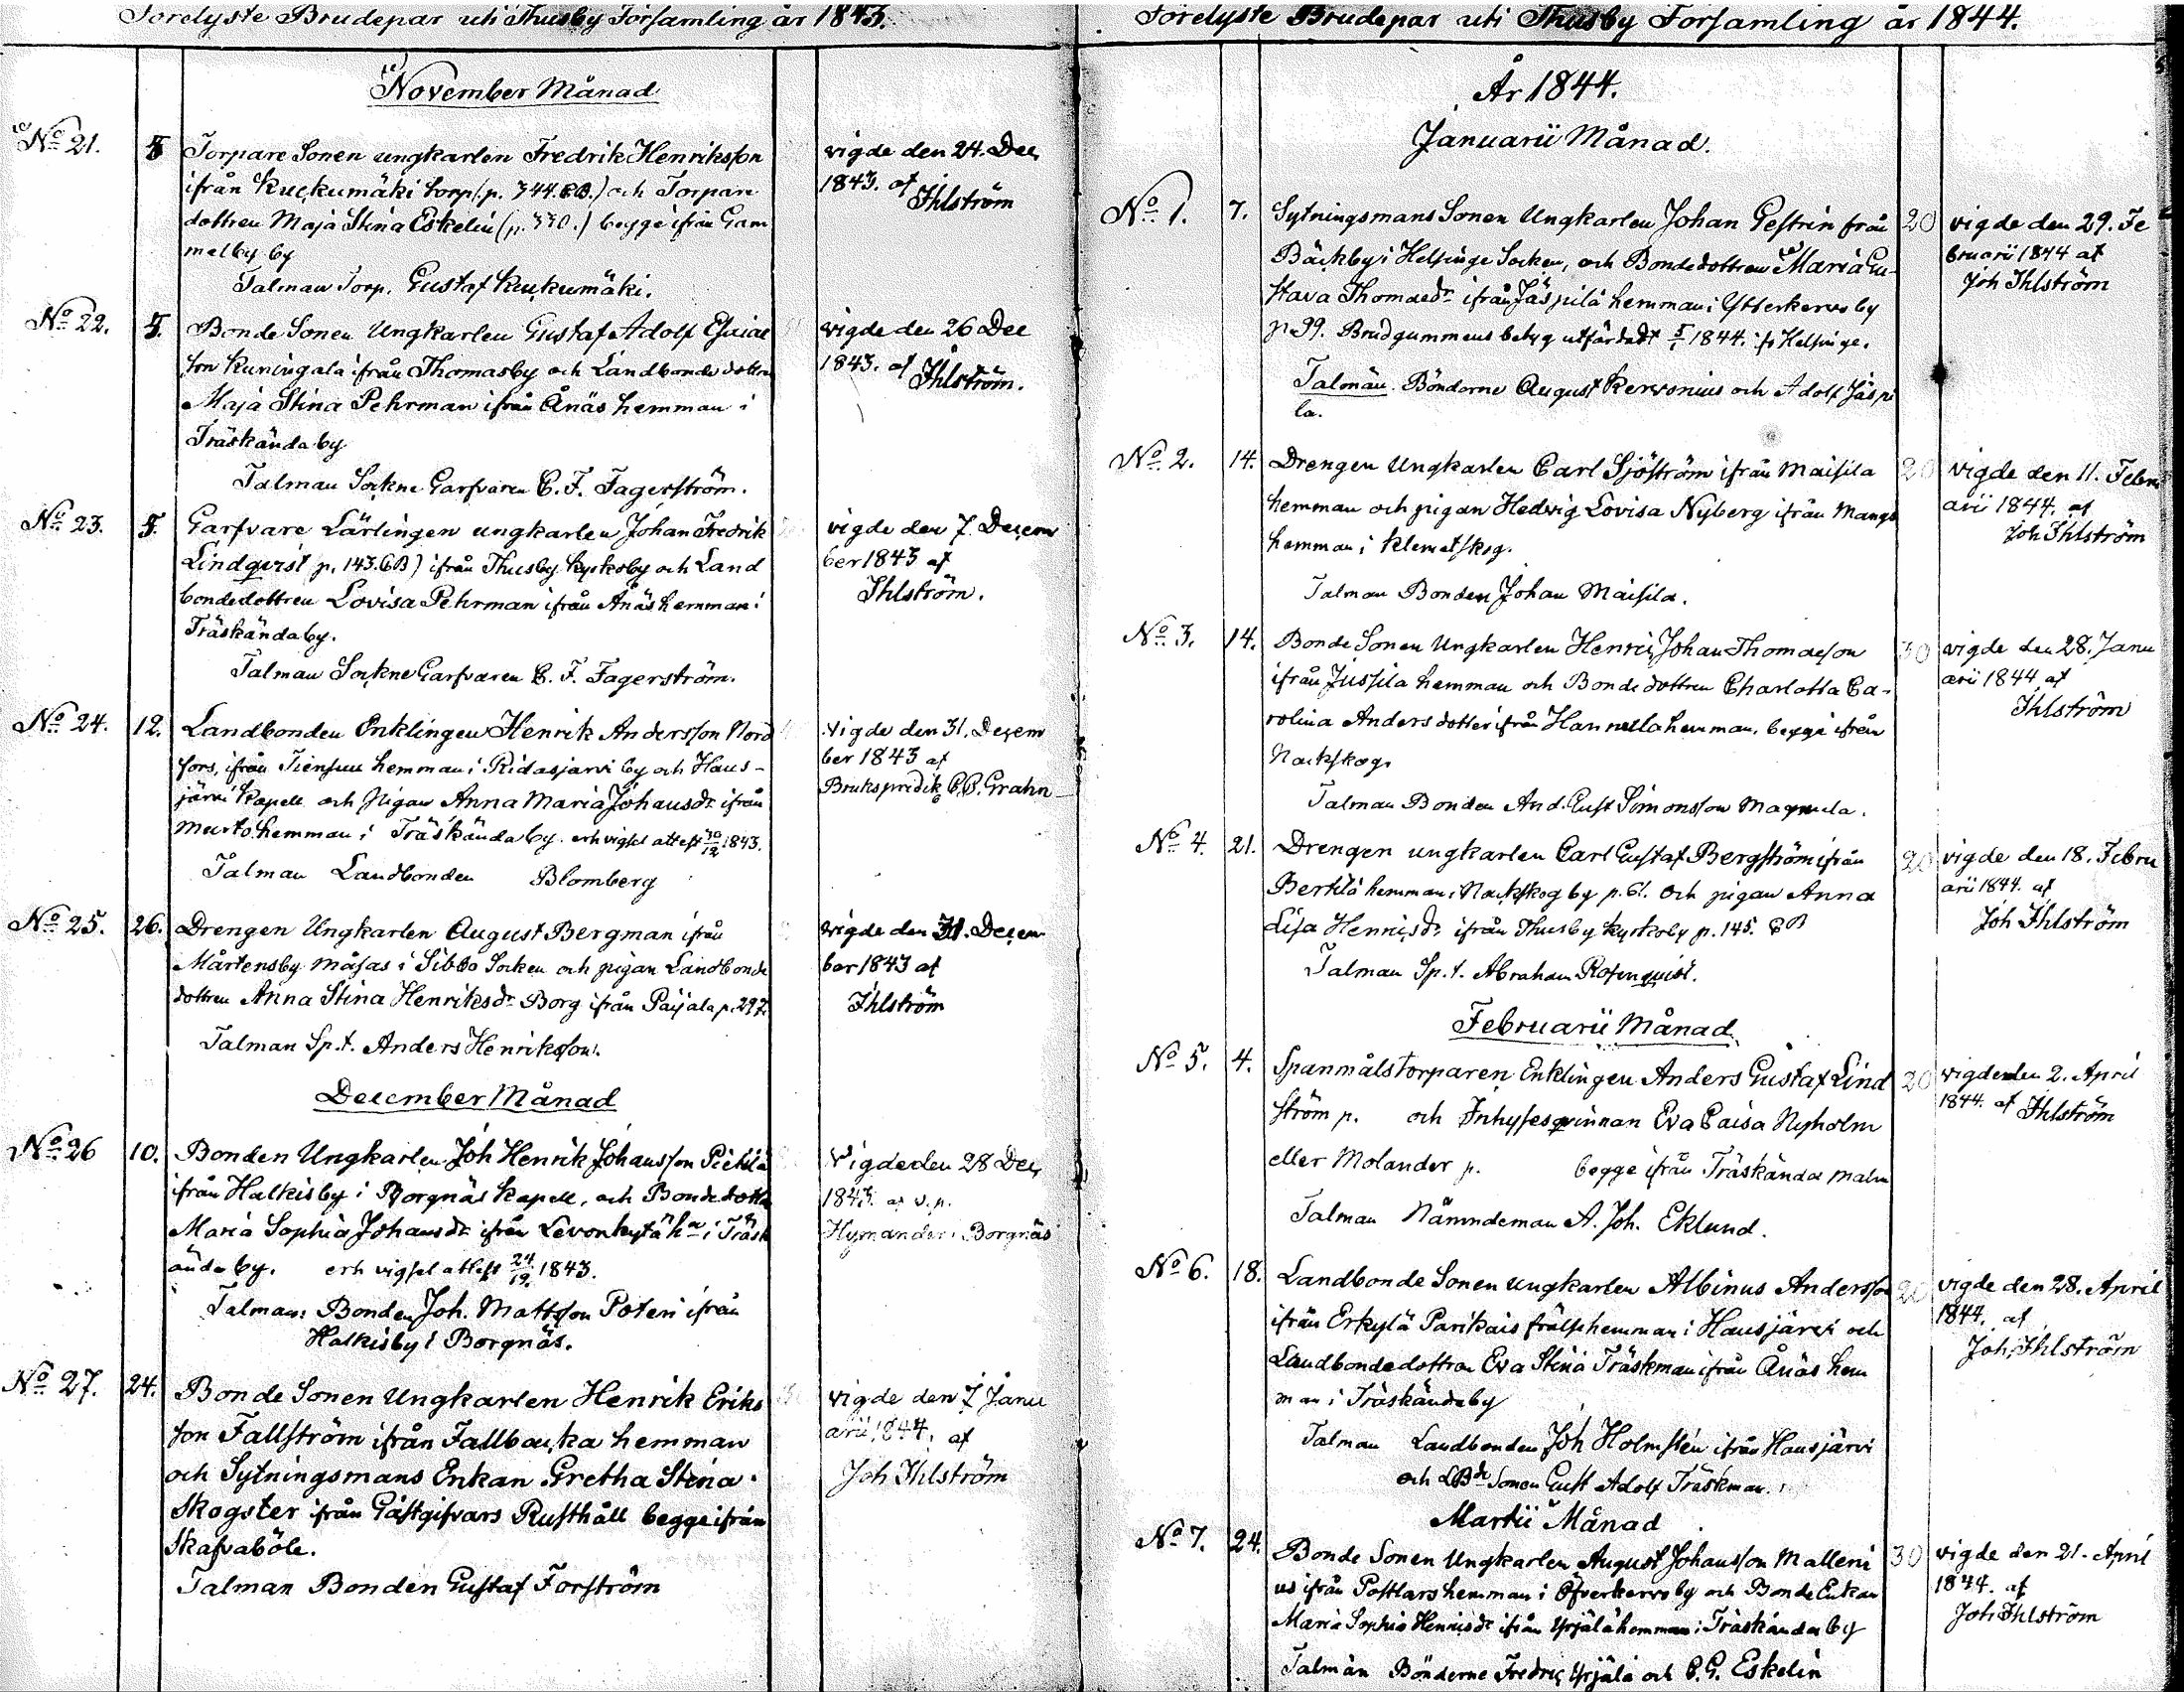 Förelyste Brudepar uti Thusby Församling år 1843.
November Månad
No 21.
5
Torpare Sonen ungkarlen Fredrik Henriksson
ifrån Kuckumäki torp (p. 344. CB.) och Torpare
dottren Maja Stina Eskelin (p. 330.) begge ifrån Gam
melby by
Talman Torp. Gustaf Kuckumäki.
vigde den 24. Dec
1843. af
Ihlström
No 22.
5.
Bonde Sonen Ungkarlen Gustaf Adolf Esaias
son Kuningala ifrån Thomasby och Landbonde dottren
Maja Stina Pehrman ifrån Ånäs hemman i
Träskända by
Talman Sockne Garfvaren C. F. Fagerström.
vigde den 26 Dec
1843. af
Ihlström.
No 23.
5.
Garfvare Lärlingen ungkarlen Johan Fredrik
Lindqvist p. 143. CB) ifrån Thusby Kyrkoby och Land
bondedottren Lovisa Pehrman ifrån Ånäs hemman i
Träskända by.
Talman Sockne Garfvaren C. F. Fagerström.
vigde den 7 Decem
ber 1843 af
Ihlström.
No 24.
12.
Landbonden Enklingen Henrik Andersson Nord
fors, ifrån hemman i Ridasjärvi by och Haus-
järvi Kapell och Pigan Anna Maria Johansdr ifrån
Murto hemman i Träskända by. erh vigsel attest 30/12 1843.
Talman Landbonden Blomberg
vigde den 31. Decem
ber 1843 af
Brukspredik C. C. Grahn
No 25.
26.
Drengen Ungkarlen August Bergman ifrån
Mårtensby Måsas i Sibbo Socken och pigan Landbonde
dottren Anna Stina Henriksdr Borg ifrån Paijala p. 297.
Talman Sp.t. Anders Henriksson.
vigde den 31. Decem
ber 1843 af
Ihlström
December Månad
No 26
10.
Bonden Ungkarlen Joh Henrik Johansson
ifrån Halkisby i Borgnäs Kapell, och Bonde dottren
Maria Sophia Johansdr ifrån Levonhytä hn i Träsk
ända by. erh vigsel attest 24/12 1843.
Talman: Bonden Joh. Mattsson Poteri ifrån
Halkisby i Borgnäs.
Vigde den 28 Dec
1843. af v.p.
Hymander i Borgnäs
No 27.
24.
Bonde Sonen Ungkarlen Henrik Eriks
son Fallström ifrån Fallbacka hemman
och Sytningsmans Enkan Gretha Stina
Skogster ifrån Gästgifvars Rusthåll begge ifrån
Skafvaböle.
Talman Bonden Gustaf Forström
vigde den 7 Janu
arii 1844. af
Joh Ihlström
Förelyste Brudepar uti Thusby Församling år 1844.
År 1844.
Januarii Månad.
No 1.
7.
Sytningsmans Sonen Ungkarlen Johan Gestrin från
Bäckby i Helsinge Socken, och Bondedottren Maria Gu-
stava Thomaedr ifrån Jäspilä hemman i Ytterkervo by
p. 99. Brudgummens betyg utfärdadt 5/1 1844. ifr Helsinge.
Talmän. Bönderne August Kervonius och Adolf Jäspi
la.
20
vigde den 29. Fe
bruarii 1844 af
Joh Ihlström
No 2.
14.
Drengen Ungkarlen Carl Sjöström ifrån Maisila
hemman och pigan Hedvig Lovisa Nyberg ifrån Mangs
hemman i Klemetskog.
Talman Bonden Johan Maisila.
20
vigde den 11. Febru
arii 1844. af
Joh Ihlström
No 3.
14.
Bonde Sonen Ungkarlen Henric Johan Thomasson
ifrån Jussila hemman och Bonde dottren Charlotta Ca-
rolina Andersdotter ifrån Hannula hemman, begge ifrån
Nackskog.
Talman Bonden And. Gust Simonsson
30
vigde den 28. Janu
arii 1844 af
Ihlström
No 4.
21.
Drengen ungkarlen Carl Gustaf Bergström ifrån
Bertila hemman i Nackskog by p. 61. Och pigan Anna
Lisa Henricsdr ifrån Thusby Kyrkoby p. 145. CB
Talman Sp.t. Abraham Rosenqvist.
20
vigde den 18. Febru
arii 1844. af
Joh Ihlström
Februarii Månad
No 5.
4.
Spanmålstorparen Enklingen Anders Gustaf Lind
ström p. och Inhysesqvinnan Eva Caisa Nyholm
eller Molander p. begge ifrån Träskända malm
Talman Nämndeman A. Joh. Eklund.
20
vigde den 2. April
1844. af Ihlström
No 6.
18.
Landbonde Sonen ungkarlen Albinus Andersson
ifrån Erkylä Parikais frälsehemman i Hausjärvi och
Landbondedottren Eva Stina Träskman ifrån Ånäs hem
man i Träskända by
Talman Landbonden Joh Holmstén ifrån Hausjärvi
och LBde Sonen Gust Adolf Träskman.
20
vigde den 28. April
1844. af
Joh. Ihlström
Martii Månad
No 7.
24.
Bonde Sonen Ungkarlen August Johansson Malleni
us ifrån Postlars hemman i Öfverkervo by och Bonde Enkan
Maria Sophia Henricsdr ifrån Yrjälä hemman i Träskända by
Talmän Bönderne Fredric Yrjälä och C. G. Eskelin
30
vigde den 21. April
1844. af
Joh Ihlström